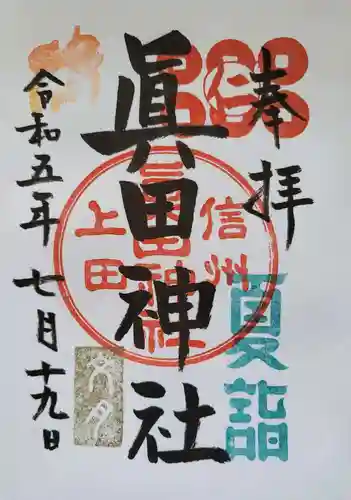 奉拝
眞田神社
令和五年七月十九日
信州
上田
眞田神社
夏詣
文月